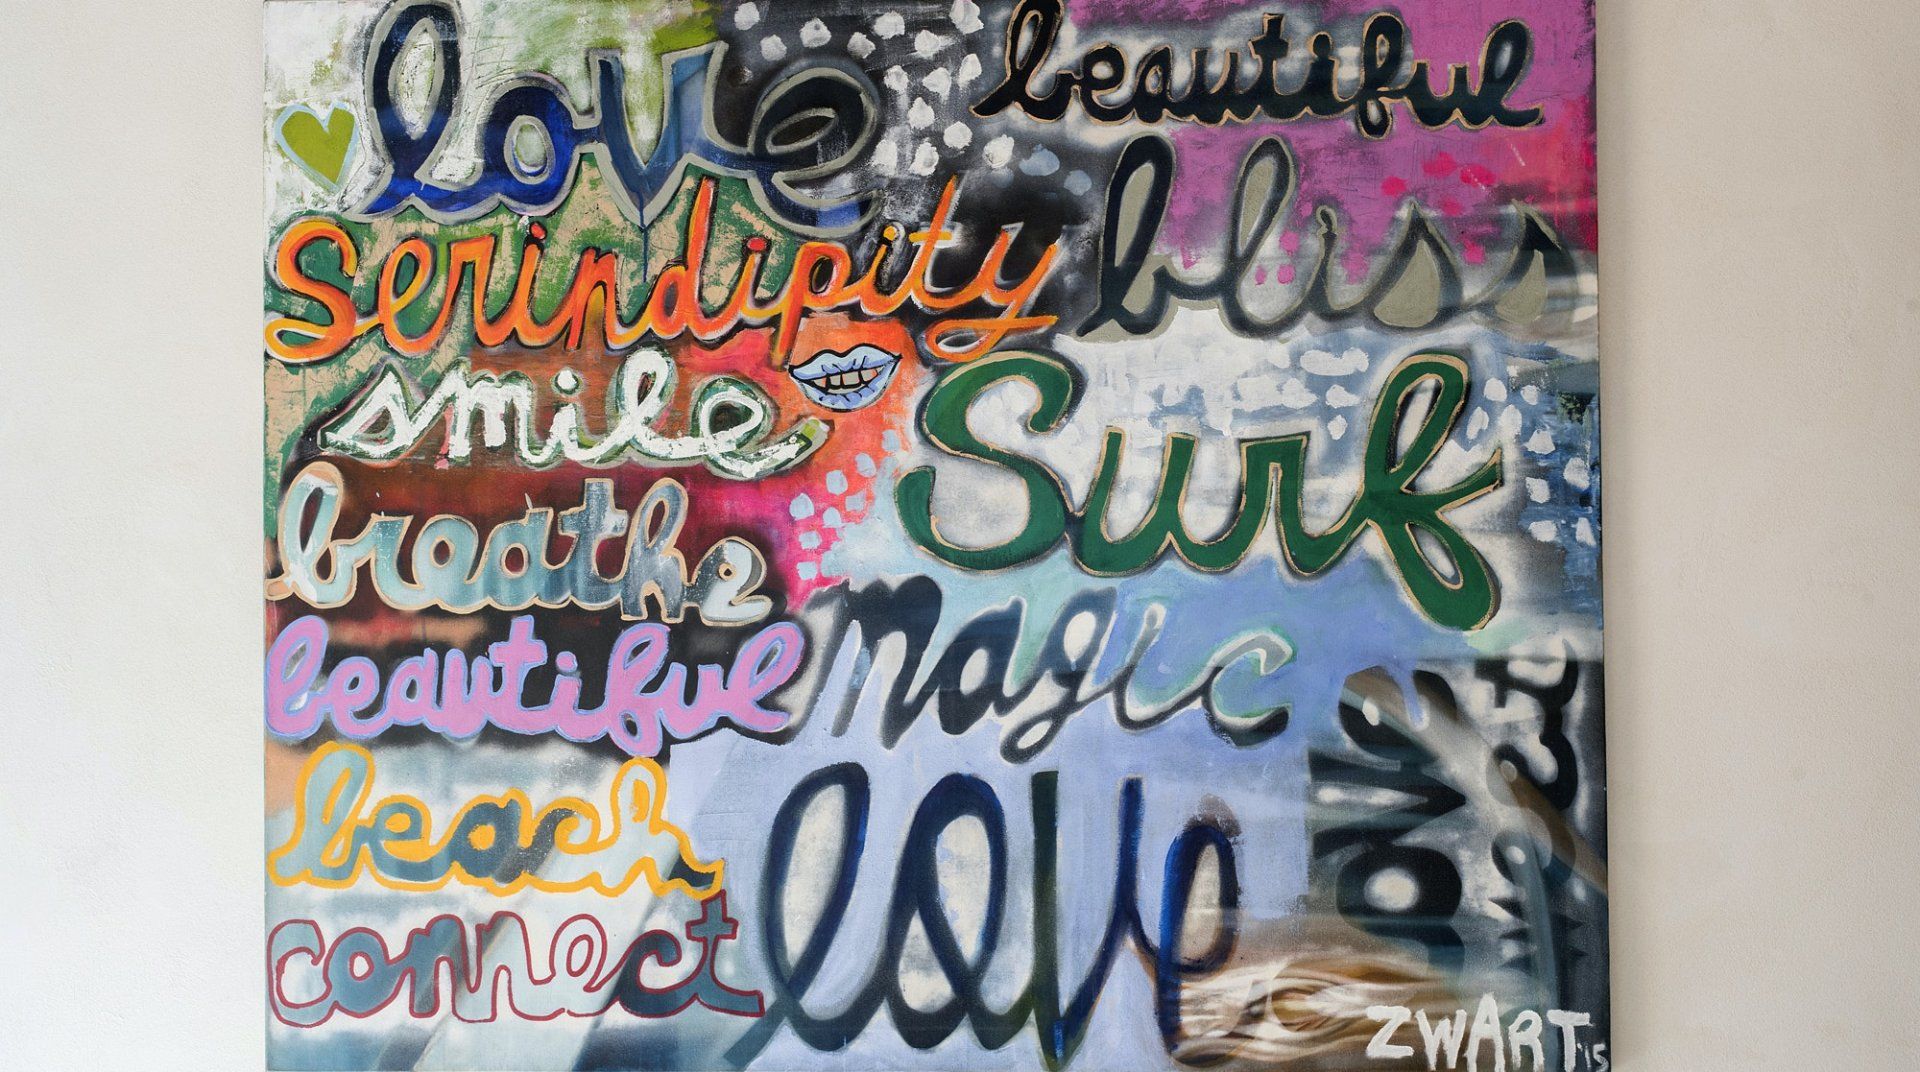 love
beautiful
Serindipity
bliss
smile
Surf
breathe
magic
beautiful
beach
love
love
connect
ZWART '15